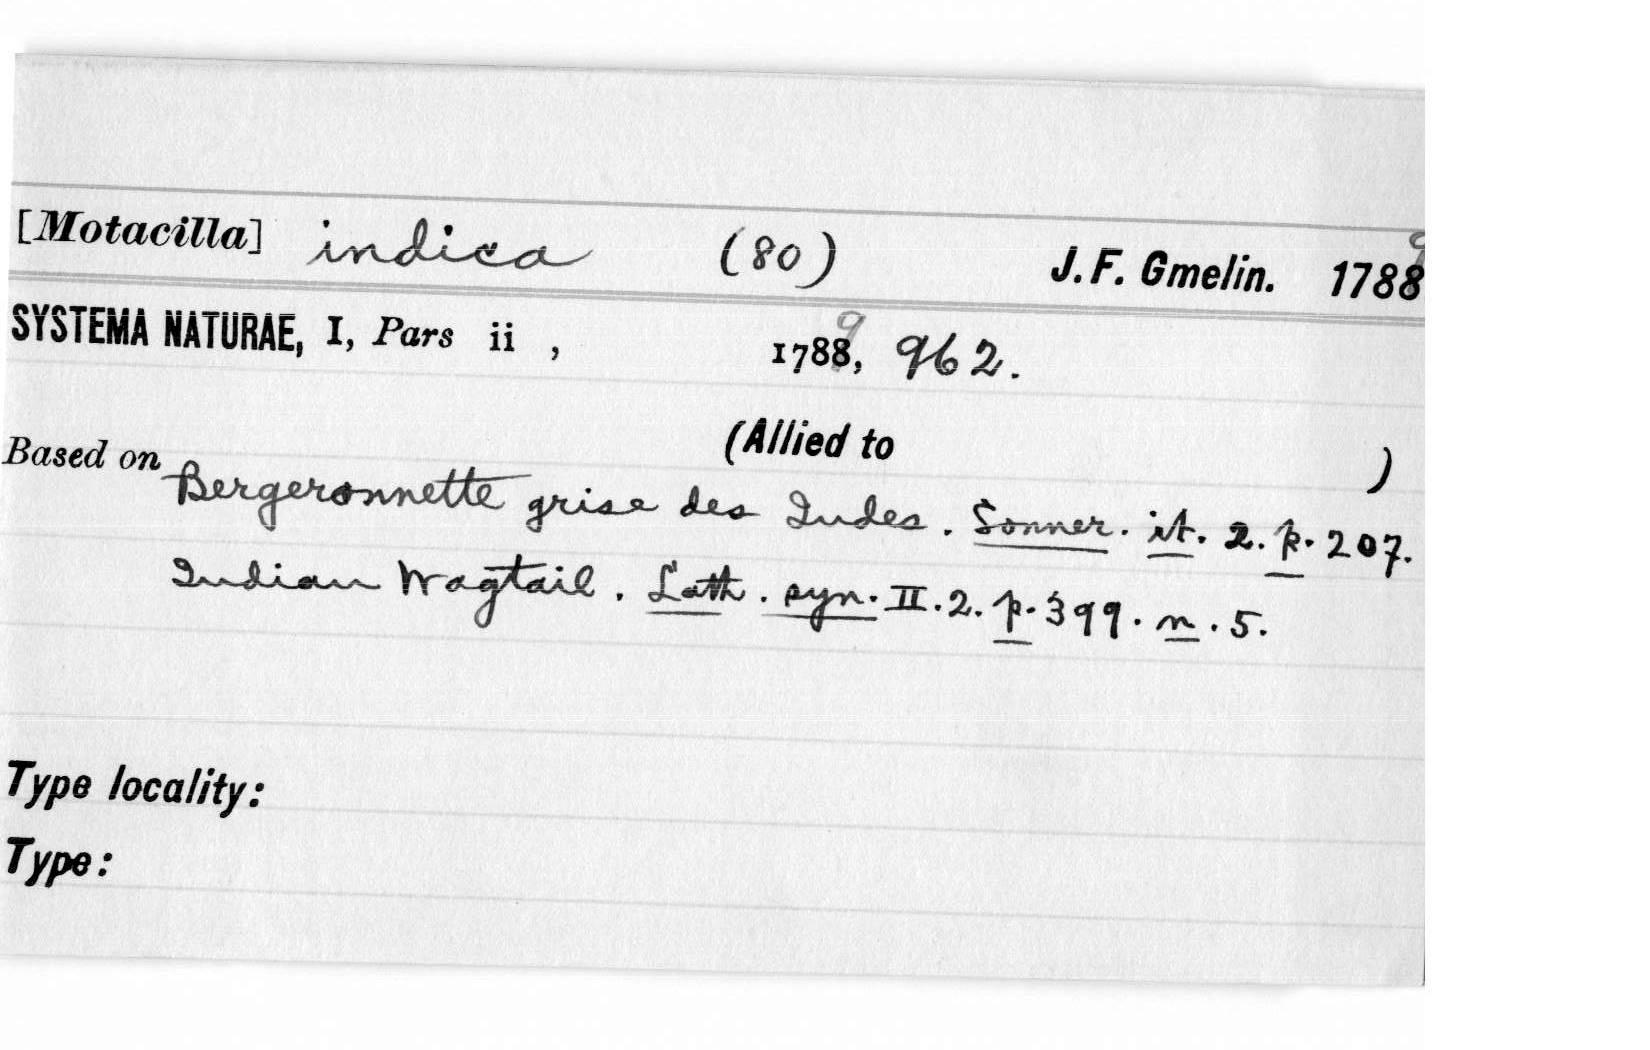 [Motacilla] indica (80) J. F. Gmelin. 1788 9
SYSTEMA NATURAE, I, Pars ii , 1788, 9 962.
(Allied to )
Based on
Bergeronnette grise des Indes. Sonner. it. 2. p. 207.
Indian Wagtail. Lath. syn. II. 2. p. 399. n. 5.
Type locality:
Type: